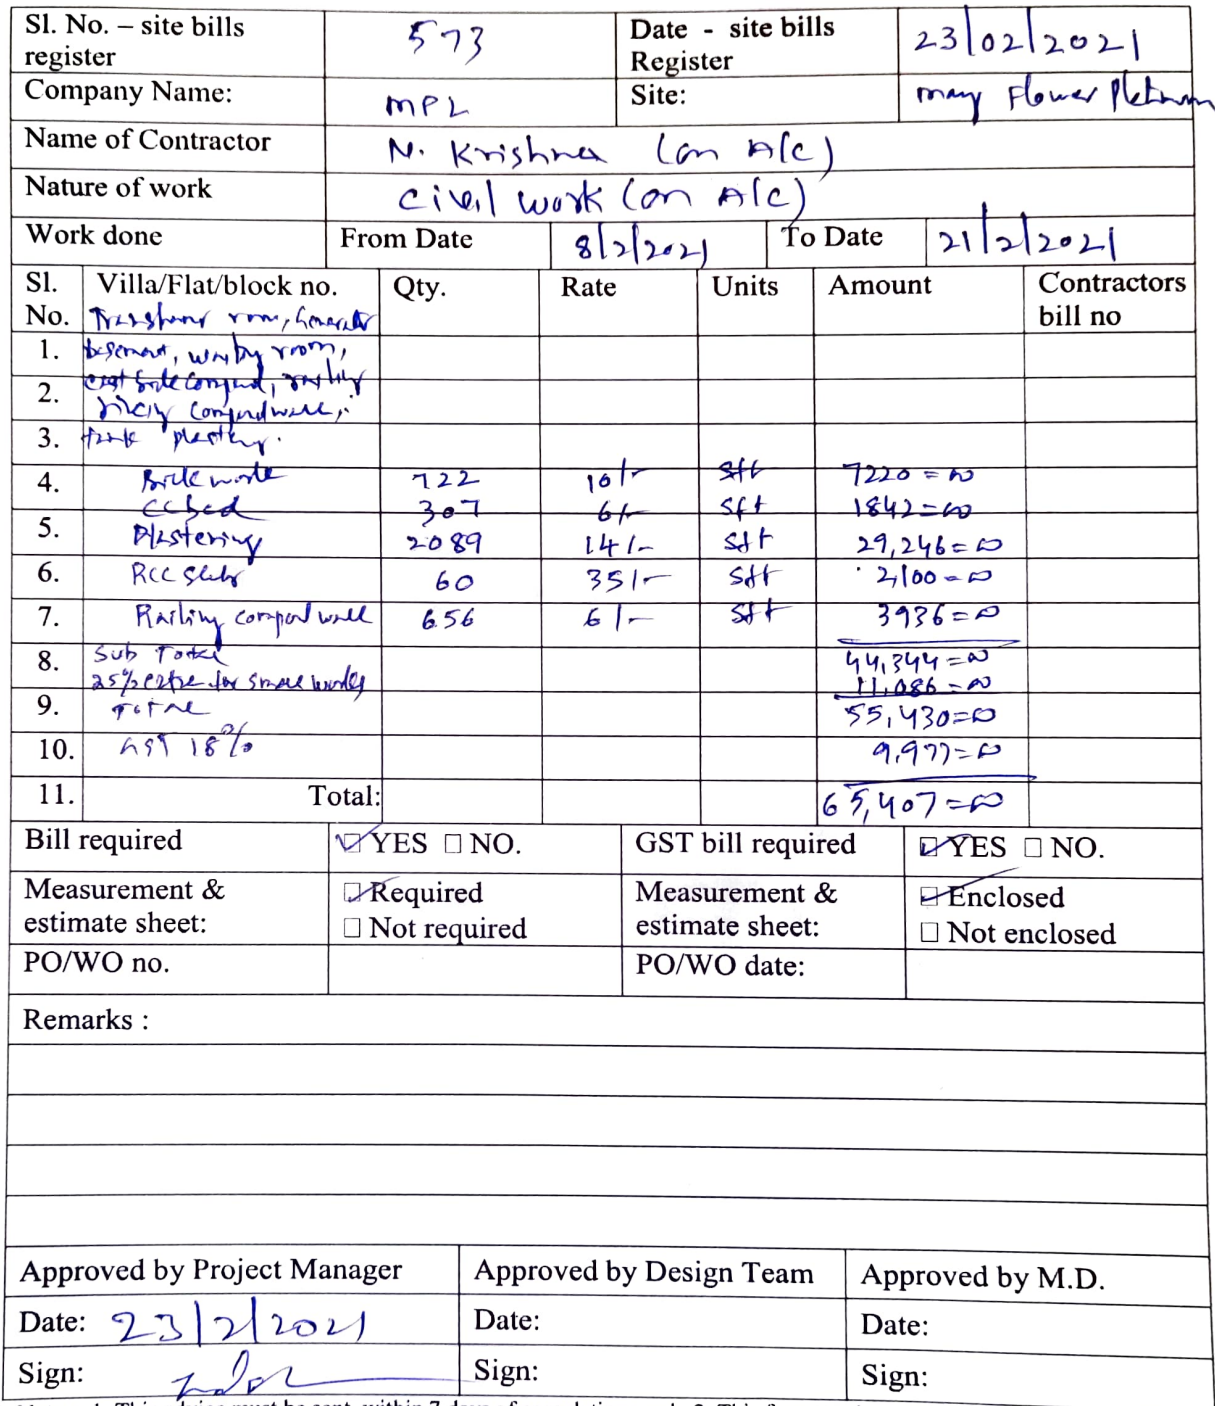 Sl. No. – site bills register 573 Date - site bills Register 23/02/2021
Company Name: MPL Site: may Flower Pletinum
Name of Contractor N. Krishna (on A/c)
Nature of work civil work (on A/c)
Work done From Date 8/2/2021 To Date 21/2/2021
Sl. No. Villa/Flat/block no. Qty. Rate Units Amount Contractors bill no
room, Generator
1. room,
2. east side
compound wall,
3. plastering.
4. Brick work 722 10/- sft 7220=00
CC bed 307 6/- sft 1842=00
5. Plastering 2089 14/- sft 29,246=00
6. RCC slab 60 35/- sft 2,100=00
7. Railing compound wall 656 6/- sft 3936=00
8. Sub Total 44,344=00
25% extra for small works 11,086=00
9. TOTAL 55,430=00
10. GST 18% 9,977=00
11. Total: 65,407=00
Bill required ☑ YES ☐ NO. GST bill required ☑ YES ☐ NO.
Measurement & estimate sheet: ☑ Required ☐ Not required Measurement & estimate sheet: ☑ Enclosed ☐ Not enclosed
PO/WO no. PO/WO date:
Remarks :
Approved by Project Manager Approved by Design Team Approved by M.D.
Date: 23/2/2021 Date: Date:
Sign: Sign: Sign: